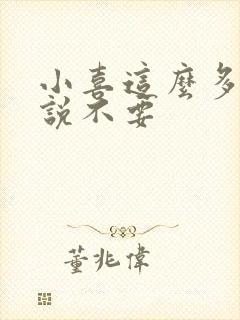 小喜這麼多
說不要
董兆偉